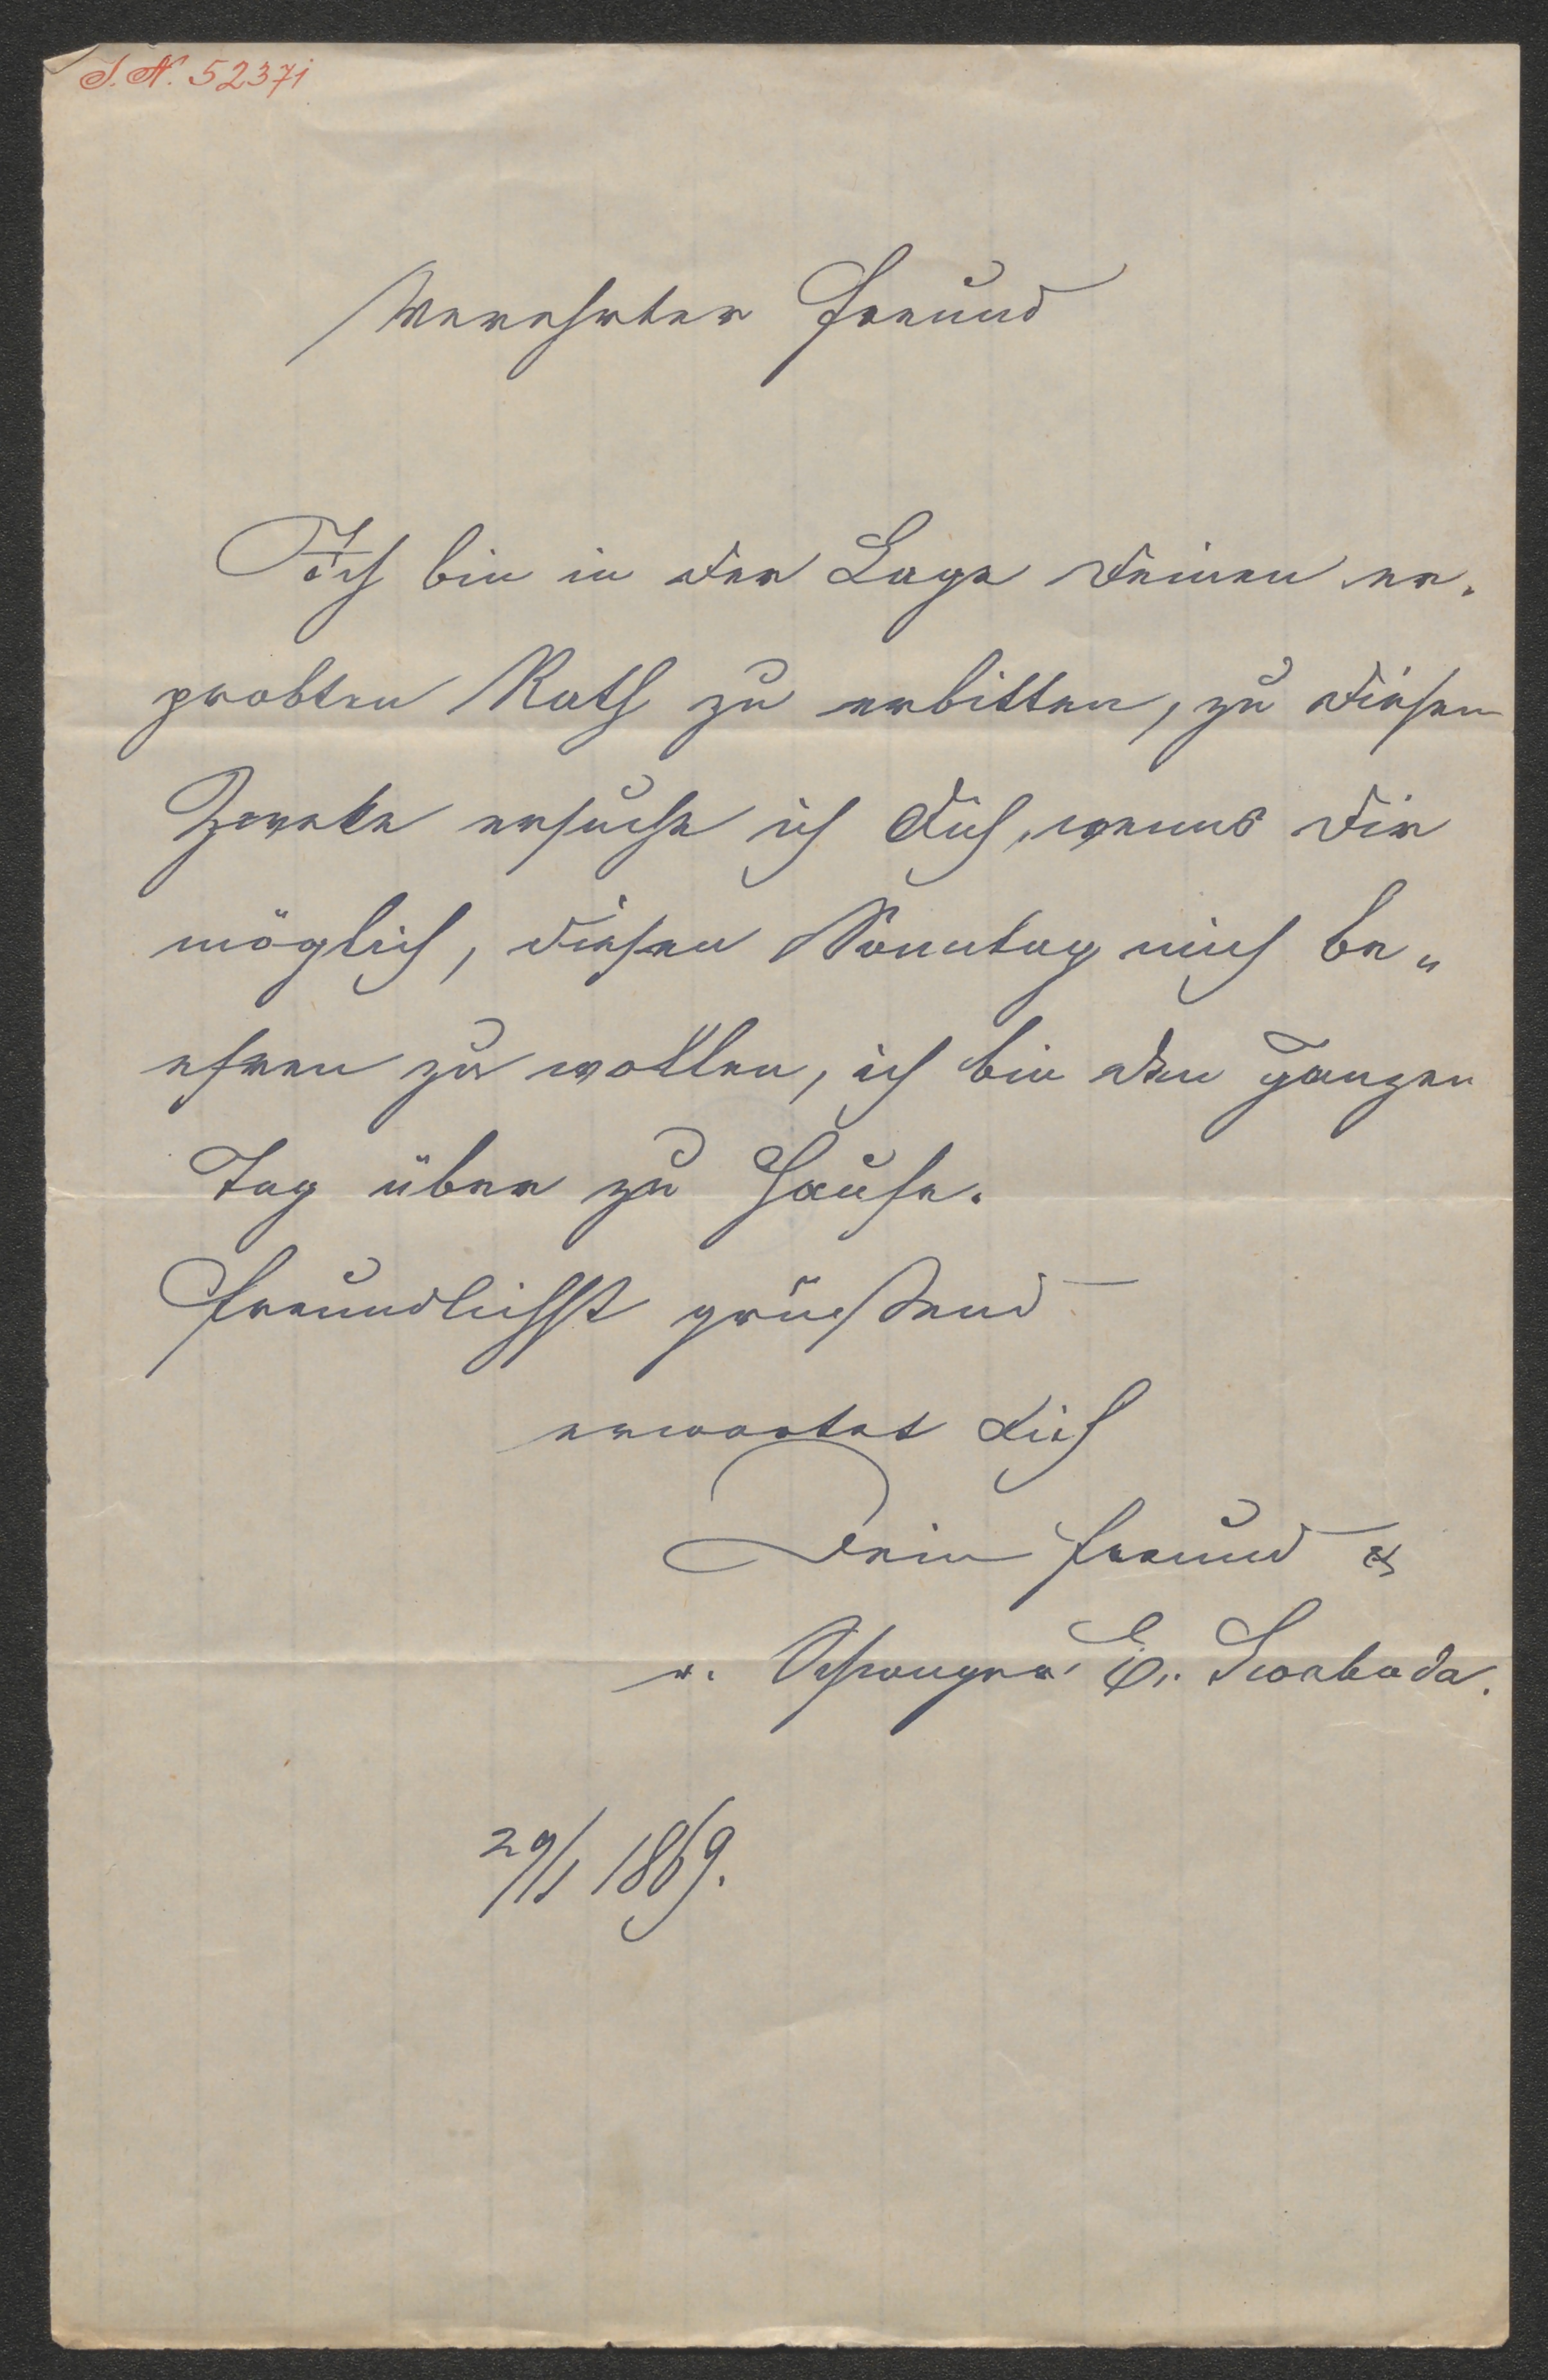 J. N. 52371
Verehrter Freund
Ich bin in der Lage deinen er-
probten Rath zu erbitten, zu diesem
Zweke ersuche ich dich, wenns dir
möglich, diesen Sonntag mich be„
ehren zu wollen, ich bin den ganzen
Tag über zu Hause.
Freundlichst grüßend
erwartet dich
Dein Freund &
Schwager E. Swoboda.
29/1 1869.